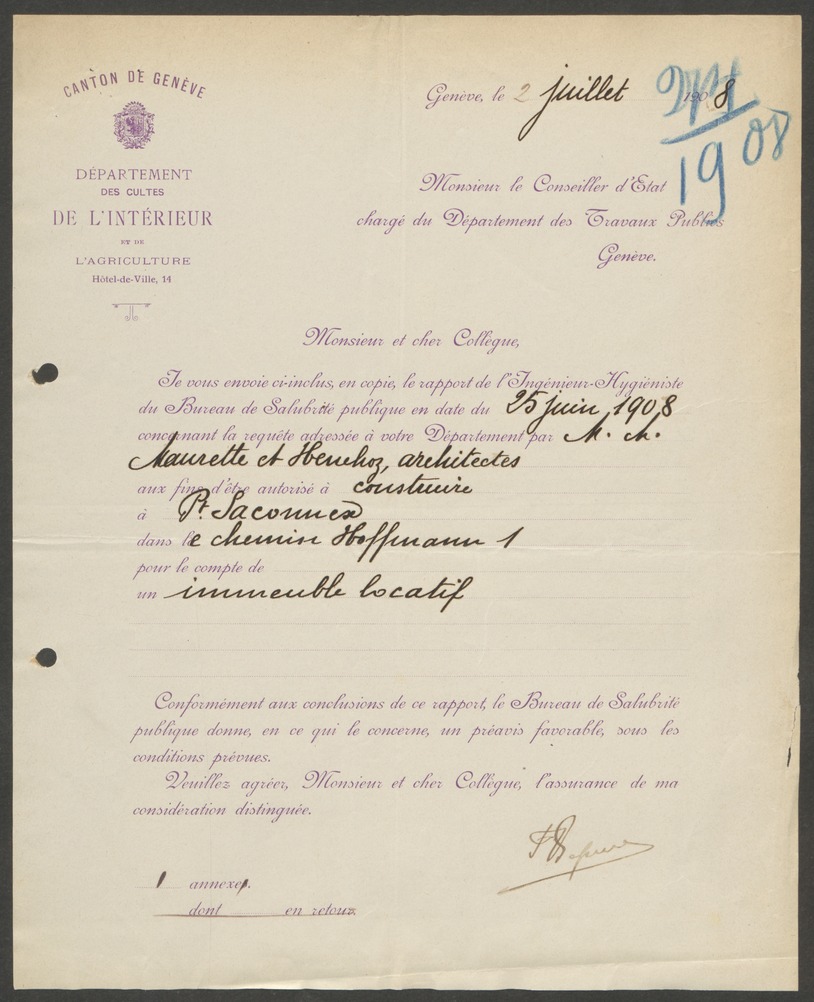 CANTON DE GENÈVE
DÉPARTEMENT
DES CULTES
DE L'INTÉRIEUR
ET DE
L'AGRICULTURE
Hôtel-de-Ville, 14
Genève, le 2 juillet 1908
19 08
Monsieur le Conseiller d'Etat
chargé du Département des Travaux Publics
Genève.
Monsieur et cher Collègue,
Je vous envoie ci-inclus, en copie, le rapport de l'Ingénieur-Hygiéniste
du Bureau de Salubrité publique en date du 25 juin 1908
concernant la requête adressée à votre Département par M. M.
Maurette et Henchoz, architectes
aux fins d'être autorisé à construire
à Pt. Saconnex
dans le chemin Hoffmann 1
pour le compte de
un immeuble locatif
Conformément aux conclusions de ce rapport, le Bureau de Salubrité
publique donne, en ce qui le concerne, un préavis favorable, sous les
conditions prévues.
Veuillez agréer, Monsieur et cher Collègue, l'assurance de ma
considération distinguée.
1 annexe.
dont en retour